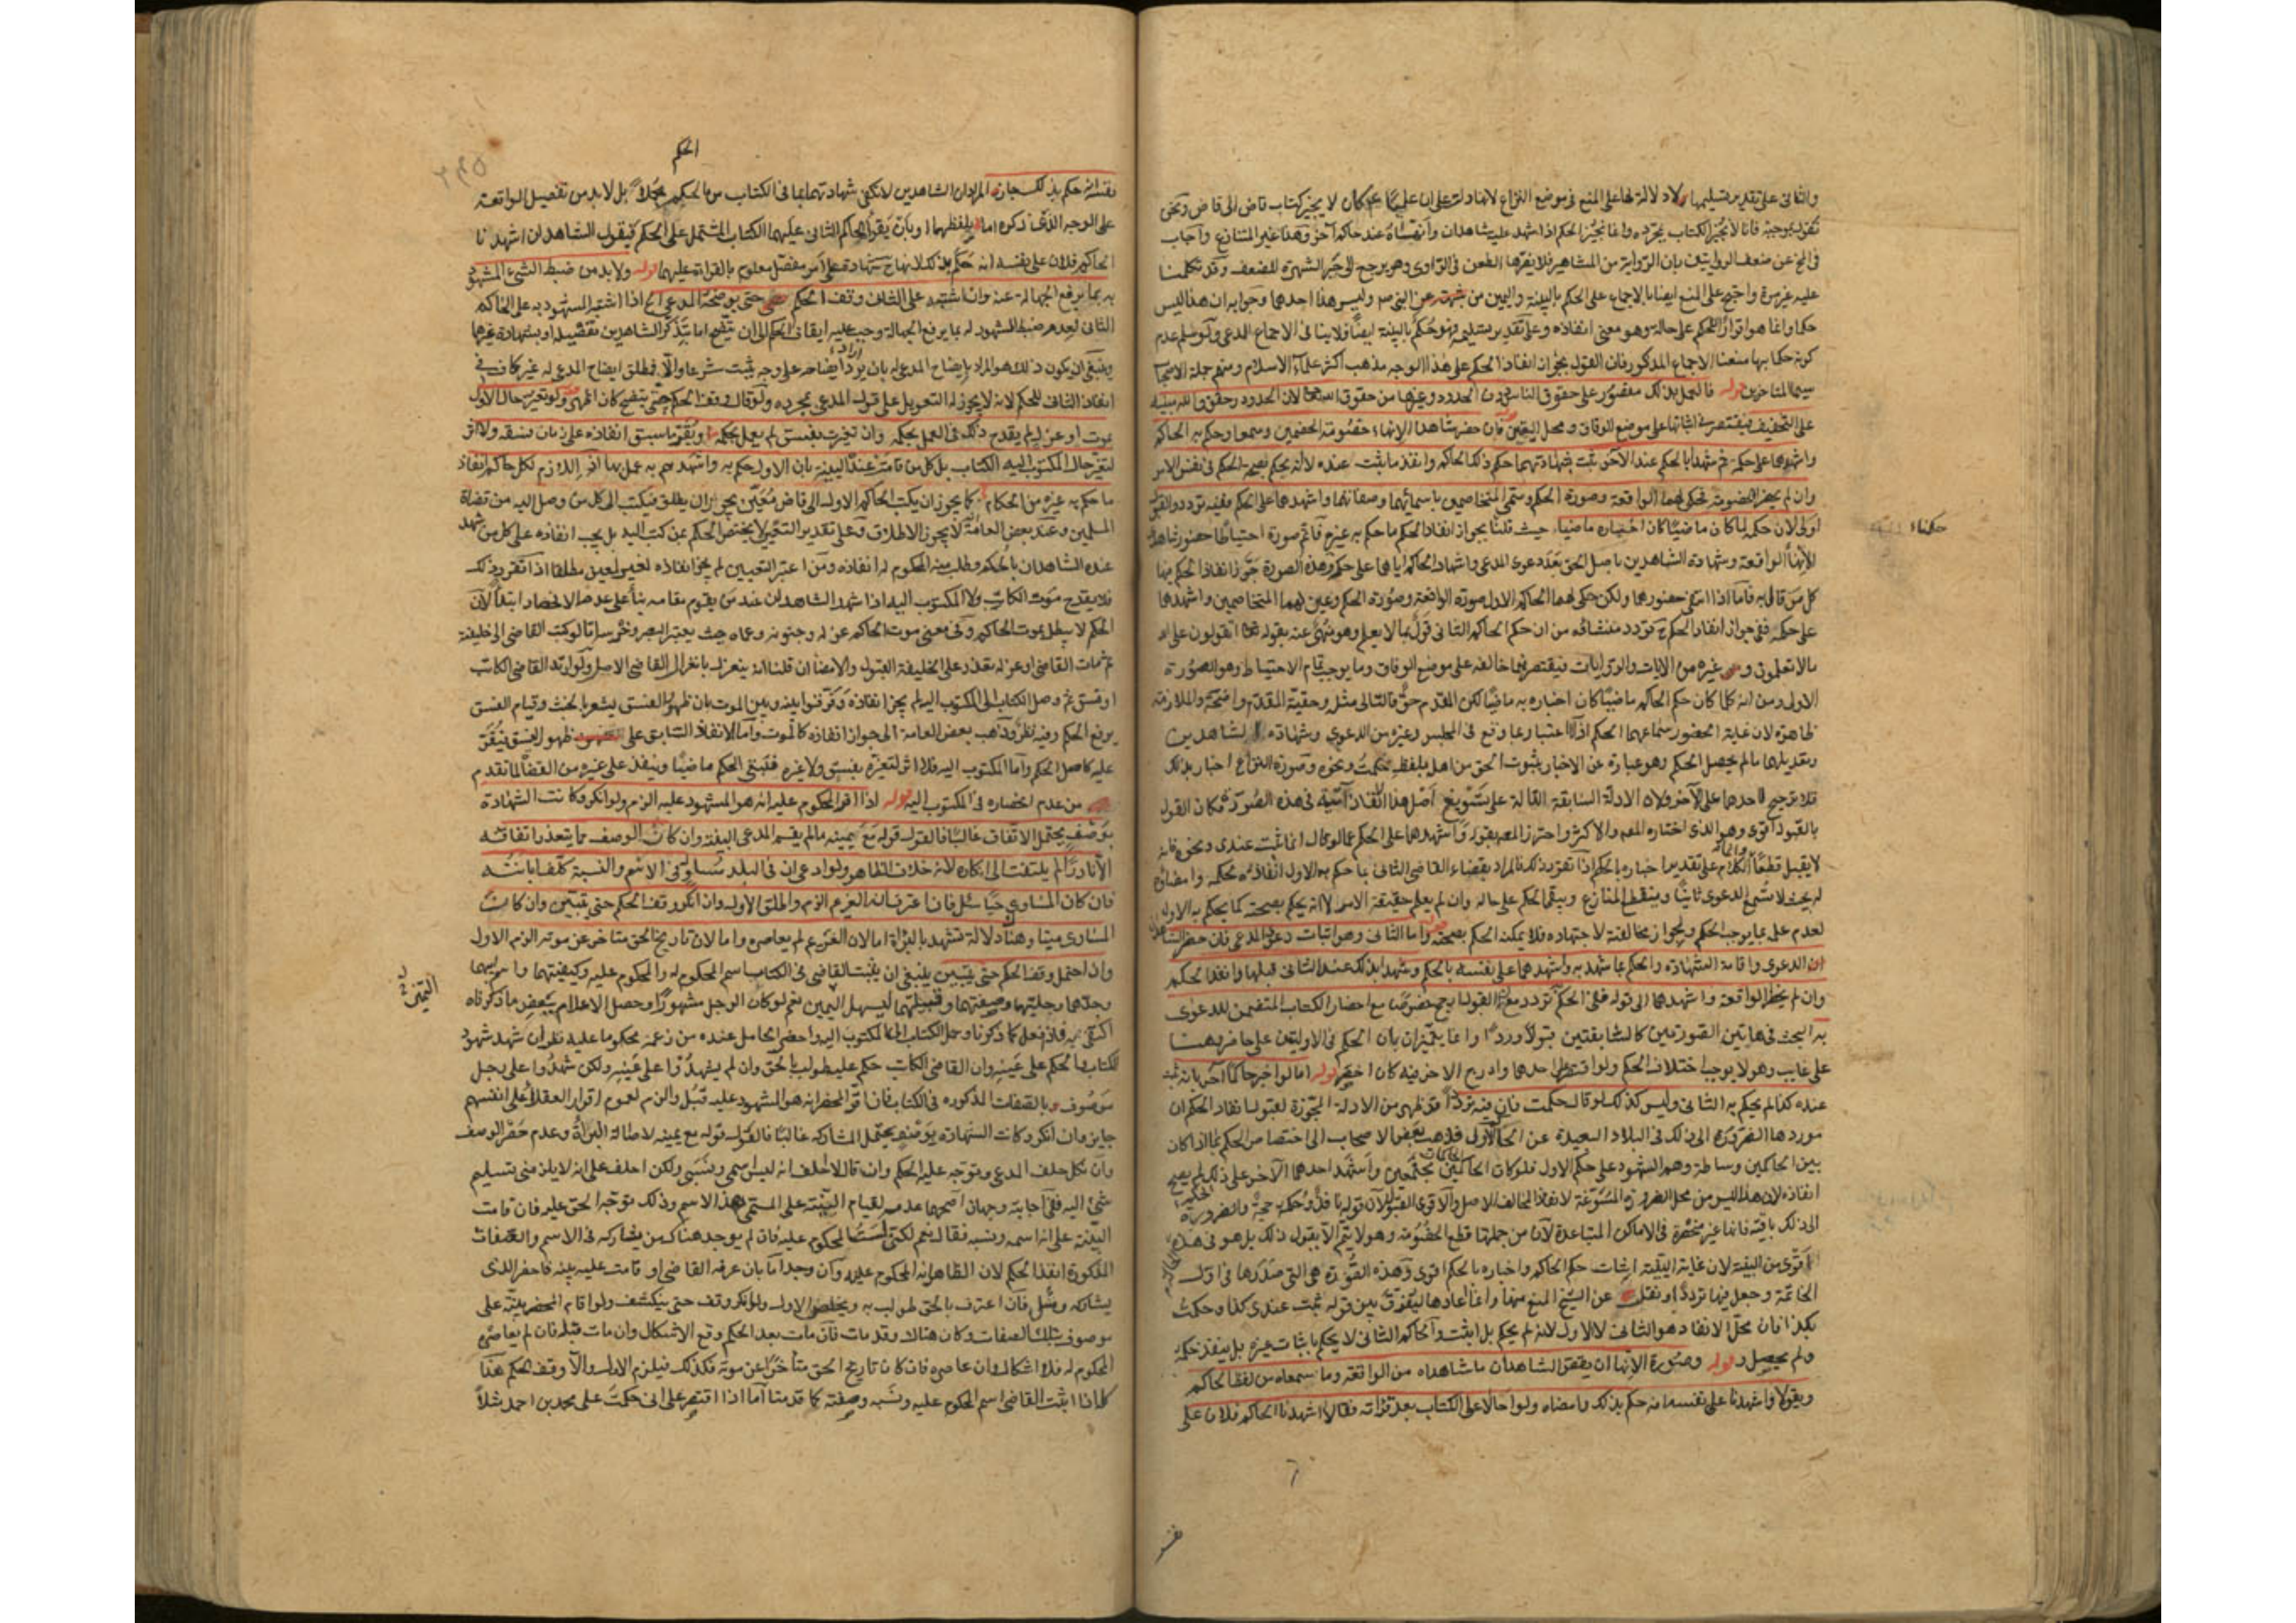 والثاني على تقدير تسليمها لا دلالة لها على المنع في موضع النزاع لانها دلت على ان عليا ع كان لا يجيز كتاب قاض الى قاض ونحن
نقول بموجبه فانا لا نجيز الكتاب بمجرده وانما نجيز الحكم اذا شهد عليه شاهدان وانفذناه عند حاكم آخر وهذا غير المتنازع واجاب
في عن ضعف الروايتين بان الرواية من المشاهير فلا يضرها الطعن في الراوي وهو يرجع الى جبر الشهرة للضعف وقد تكلمنا
عليه غير مرة واحتج على المنع ايضا بالاجماع على الحكم بالبينة واليمين من عن النبي وليس هذا احدهما وجوابه ان هذا ليس
حكما وانما هو اقرار للحكم على حاله وهو معنى انفاذه وعلى تقدير تسليمه فهو حكم بالبينة ايضا فلا ينافي الاجماع المدعى ولو سلم عدم
كونه حكما بها منعنا الاجماع المذكور فان القول بجواز انفاذ الحكم على هذا الوجه مذهب اكثر علماء الاسلام ومنهم جملة الاصحاب
سيما المتاخرين قوله فالعمل بذلك مقصور على حقوق الناس دون الحدود وغيرها من حقوق الله لان الحدود وحقوق الله مبنية
على التخفيف فيقتصر في اثباتها على موضع الوفاق ومحل اليقين فان حضر شاهدا الانهاء خصومة الخصمين وسمعا وحكم به الحاكم
واشهدهما على حكمه ثم شهدا بالحكم عند الآخر ثبت بشهادتهما حكم ذلك الحاكم وانفذ ما ثبت عنده لا انه يحكم بصحة الحكم في نفس الامر
وان لم يحضرا الخصومة فحكى لهما الواقعة وصورة الحكم وسمى المتخاصمين باسمائهما وصفاتهما واشهدهما على الحكم ففيه تردد والقول
اولى لان حكمه لما كان ماضيا كان اخباره ماضيا حيث قلنا بجواز انفاذ الحكم ما حكم به غيره فاتم صورة احتياطا حضور شاهدي
حكماء
الانهاء الواقعة وشهادة الشاهدين باصل الحق بعد دعوى المدعي واشهاد الحاكم اياهما على حكمه وهذه الصورة جوز انفاذ الحكم بها
كل من قال به فاما اذا انتفى حضورهما ولكن حكى لهما الحاكم الاول صورة الواقعة وصورة الحكم وعين لهما المتخاصمين واشهدهما
على حكمه ففي جواز انفاذ الحكم ح تردد منشاؤه من ان حكم الحاكم الثاني قول بما لا يعلم وهو منهي عنه بقوله تعا اتقولون على الله
ما لا تعلمون وغيره من الايات والروايات فيقتصر فيما خالفه على موضع الوفاق وما يوجب تمام الاحتياط وهو الصورة
الاولى ومن انه كلما كان حكم الحاكم ماضيا كان اخباره به ماضيا لكن المقدم حق فالتالي مثله وحقية المقدم واضحة والملازمة
ظاهرة لان غاية الحضور سماعهما الحكم اذ لا اعتبار بما وقع في المجلس وغيره من الدعوى وشهادة الشاهدين
وتعديلهما ما لم يحصل الحكم وهو عبارة عن الاخبار بثبوت الحق من اهله بلفظ حكمت ونحوه وصورة النزاع اخبار بذلك
فلا ترجيح لاحدهما على الآخر ولان الادلة السابقة الدالة على تسويغ اصل هذا الانفاذ آتية في هذه الصورة فكان القول
بالقبول اقوى وهو الذي اختاره المصر والاكثر واحترز المصر بقوله واشهدهما على الحكم عما لو قال انما ثبت عندي ونحوه فانه
لا يقبل قطعا الكلام على تقدير اخباره بالحكم اذا تقرر ذلك فالمراد بقضاء القاضي الثاني بما حكم به الاول انفاذه لحكمه وامضاؤه
له بحيث لا تسمع الدعوى ثانيا وينقطع المنازع ويبقى الحكم على حاله وان لم يعلم حقيقة الامر لا انه يحكم بصحته كما يحكم به الاول
لعدم علمه بما يوجب الحكم ولجواز مخالفته لاجتهاده فلا يمكنه الحكم بصحته قوله واما الثاني وهو اثبات دعوى المدعي فان حضر الشاهدان
الدعوى واقامة الشهادة والحكم بما شهد به واشهدهما على نفسه بالحكم وشهدا بذلك عند الثاني قبلها وانفذ الحكم
وان لم يحضرا الواقعة واشهدهما الى قوله ففي الحكم تردد مع ان القول به ارجح خصوصا مع احضار الكتاب المتضمن للدعوى
البحث في هاتين الصورتين كالسابقتين قبولا وردا وانما يتميزان بان الحكم في الاوليين على حاضر وهنا
على غايب وهو لا يوجب اختلاف الحكم ولو اقتصر على احدهما وادرج الآخر فيه كان اخصر قوله اما لو اخبر حاكما آخر بانه ثبت
عنده كذا لم يحكم به الثاني وليس كذلك لو قال حكمت فان فيه ترددا قد ظهر من الادلة المجوزة لقبول انفاذ الحكم ان
موردها الضرورة الى ذلك في البلاد البعيدة عن الحاكم الاول فذهب بعض الاصحاب الى اختصاص الحكم بما اذا كان
بين الحاكمين وساطة وهم الشهود على حكم الاول فلو كان الحاكمان مجتمعين واشهد احدهما الآخر على ذلك لم يصح
انفاذه لان هذا ليس من محل الضرورة المسوغة لانفاذ المخالف للاصل والاقوى القبول لان قوله فذ وحكمه حجة والضرورة
الى ذلك باقية فانها غير منحصرة في الاماكن المتباعدة لان من جملتها قطع الخصومة وهو لا يتم الا بقبول ذلك بل هو في هذه
اقوى من البينة لان غاية البينة اثبات حكم الحاكم واخباره بالحكم اقوى وهذه الصورة هي التي صدرها في اول
الخاتمة وجعل فيها ترددا ونقل عن الشيخ المنع منها وانما اعادها ليفرق بين قوله ثبت عندي كذا وحكمت
بكذا فان محل الانفاذ هو الثاني لا الاول لانه لم يحكم بل اثبت والحاكم الثاني لا يحكم باثبات غيره بل ينفذ حكمه
ولم يحصل قوله وصورة الانهاء ان يقص الشاهدان ما شاهداه من الواقعة وما سمعاه من لفظ الحاكم
ويقولا واشهدنا على نفسه انه حكم بذلك وامضاه ولو احالا على الكتاب بعد قراءته فقالا اشهدنا الحاكم فلان على
نفسه
الحكم
نفسه انه حكم بذلك جاز المراد ان الشاهدين لا تكفي شهادتهما بما في الكتاب من الحكم مجملا بل لابد من تفصيل الواقعة
على الوجه الذي ذكره اما بلفظهما او بان يقرأ الحاكم الثاني عليهما الكتاب المشتمل على الحكم فيقول الشاهدان اشهدنا
الحاكم فلان على نفسه انه حكم بذلك لانها ح شهادة على امر مفصل معلوم بالقراءة عليهما قوله ولابد من ضبط الشيء المشهود
به بما يرفع الجهالة عنه وان اشتبه على الثاني وقف الحكم حتى يوضحه المدعي اذا اشتبه المشهود به على الحاكم
الثاني لعدم ضبط المشهود له بما يرفع الجهالة وجب عليه ايقاف الحكم الى ان يتضح اما بتذكر الشاهدين تفصيله او بشهادة غيرهما
وينبغي ان يكون ذلك هو المراد بايضاح المدعي له بان يريد ايضاحه على وجه يثبت شرعا والا فمطلق ايضاح المدعي له غير كاف في
انفاذ الثاني للحكم لانه لا يجوز له التعويل على قول المدعي بمجرده ولو قال وقف الحكم حتى يتضح كان اظهر قوله ولو تغيرت حال الاول
بموت او عزل لم يقدح ذلك في العمل بحكمه وان تغيرت بفسق لم يعمل بحكمه ويقر ما سبق انفاذه على زمان فسقه ولا اثر
لتغير حال المكتوب اليه الكتاب بل كل من قامت عنده البينة بان الاول حكم به واشهدهم به عمل بها اذ اللازم لكل حاكم انفاذ
ما حكم به غيره من الحكام كما يجوز ان يكتب الحاكم الاول الى قاض معين يجوز ان يطلق فيكتب الى كل من وصل اليه من قضاة
المسلمين وعند بعض العامة لا يجوز الاطلاق وعلى تقدير التعيين لا يختص الحكم بمن كتب اليه بل يجب انفاذه على كل من شهد
عنده الشاهدان بالحكم وطلب منه المحكوم له انفاذه ومن اعتبر التعيين لم يجز انفاذه لغير المعين مطلقا اذا تقرر ذلك
فلا يقدح موت الكاتب ولا المكتوب اليه اذا شهد الشاهدان عند من يقوم مقامه بناء على عدم الانحصار ابتداء لان
الحكم لا يبطل بموت الحاكم وفي معنى موت الحاكم عزله وجنونه وعماه حيث يعتبر البصر وخرسه اما لو كتب القاضي الى خليفته
ثم مات القاضي او عزل تعذر على الخليفة القبول والامضاء ان قلنا انه ينعزل بانعزال القاضي الاصل ولو ارتد القاضي الكاتب
او فسق ثم وصل الكتاب الى المكتوب اليه لم يجز انفاذه وفرقوا بينه وبين الموت بان ظهور الفسق يشعر بالخبث وقيام الفسق
يوم الحكم وفيه نظر وذهب بعض العامة الى جواز انفاذه كالموت واما الانفاذ السابق على ظهور الفسق فيقر
عليه كاصل الحكم واما المكتوب اليه فلا اثر لتغيره بفسق ولا غيره فيبقى الحكم ماضيا وينفذ على غيره من القضاة لما تقدم
من عدم انحصاره في المكتوب اليه قوله اذا اقر المحكوم عليه انه هو المشهود عليه الزم ولو انكر وكانت الشهادة
بوصف يحتمل الاتفاق غالبا فالقول قوله مع يمينه ما لم يقم المدعي البينة وان كان الوصف مما يتعذر اتفاقه
الا نادرا لم يلتفت الى انكاره لانه خلاف الظاهر ولو ادعى ان في البلد مساو له في الاسم والنسبة كلف ابانته
فان كان المساوي حيا سئل فان اعترف انه الغريم الزم واطلق الاول وان انكر وقف الحكم حتى يتبين وان كان
المساوي ميتا وهناك دلالة تشهد بالبراءة اما لان الغريم لم يعاصره واما لان تاريخ الحق متاخر عن موته الزم الاول
وان احتمل وقف الحكم حتى يتبين ينبغي ان يثبت القاضي في الكتاب اسم المحكوم له والمحكوم عليه وكنيتهما واسم ابيهما
وجدهما وحليتهما وصنعتهما وقبيلتهما ليسهل التميز نعم لو كان الرجل مشهورا وحصل الاعلام ببعض ما ذكرناه
التميز
اكتفى به فاذا فعل كما ذكرنا وصل الكتاب الى المكتوب اليه واحضر الحامل عنده من زعمه محكوما عليه نظر ان شهد شهود
الكتاب بالحكم على عينه وان القاضي الكاتب حكم عليه طولب بالحق وان لم يشهدوا على عينه ولكن شهدوا على رجل
موصوف بالصفات المذكورة في الكتاب فان اقر المحضر انه هو المشهود عليه قبل والزم لعموم اقرار العقلاء على انفسهم
جايز وان انكر وكانت الشهادة بوصف يحتمل المشاركة غالبا فالقول قوله مع يمينه لاصالة البراءة وعدم حصر الوصف
وان نكل حلف المدعي وتوجه عليه الحكم وان قال لا احلف انه ليس اسمي ونسبي ولكن احلف على انه لا يلزمني تسليم
شيء اليه ففي اجابته وجهان اصحهما عدمه لقيام البينة على المسمى بهذا الاسم وذلك توجه الحق عليه فان قامت
البينة على انه اسمه ونسبه فقال نعم لكني لست المحكوم عليه فان لم يوجد هناك من يشاركه في الاسم والصفات
المذكورة انفذ الحكم لان الظاهر انه المحكوم عليه وان وجد اما بان عرفه القاضي او قامت عليه بينة فاحضر الذي
يشاركه وسئل فان اعترف بالحق طولب به ويخلص الاول ولو انكر وقف حتى ينكشف ولو اقام المحضر بينة على
موصوف بتلك الصفات وكان هناك وقد مات فان مات بعد الحكم وقع الاشكال وان مات قبله فان لم يعاصره
المحكوم له فلا اشكال وان عاصره فان كان تاريخ الحق متأخرا عن موته فكذلك فيلزم الاول والا وقف الحكم هذا
كله اذا اثبت القاضي اسم المحكوم عليه ونسبه وصفته كما قدمنا اما اذا اقتصر على اني حكمت على محمد بن احمد مثلا